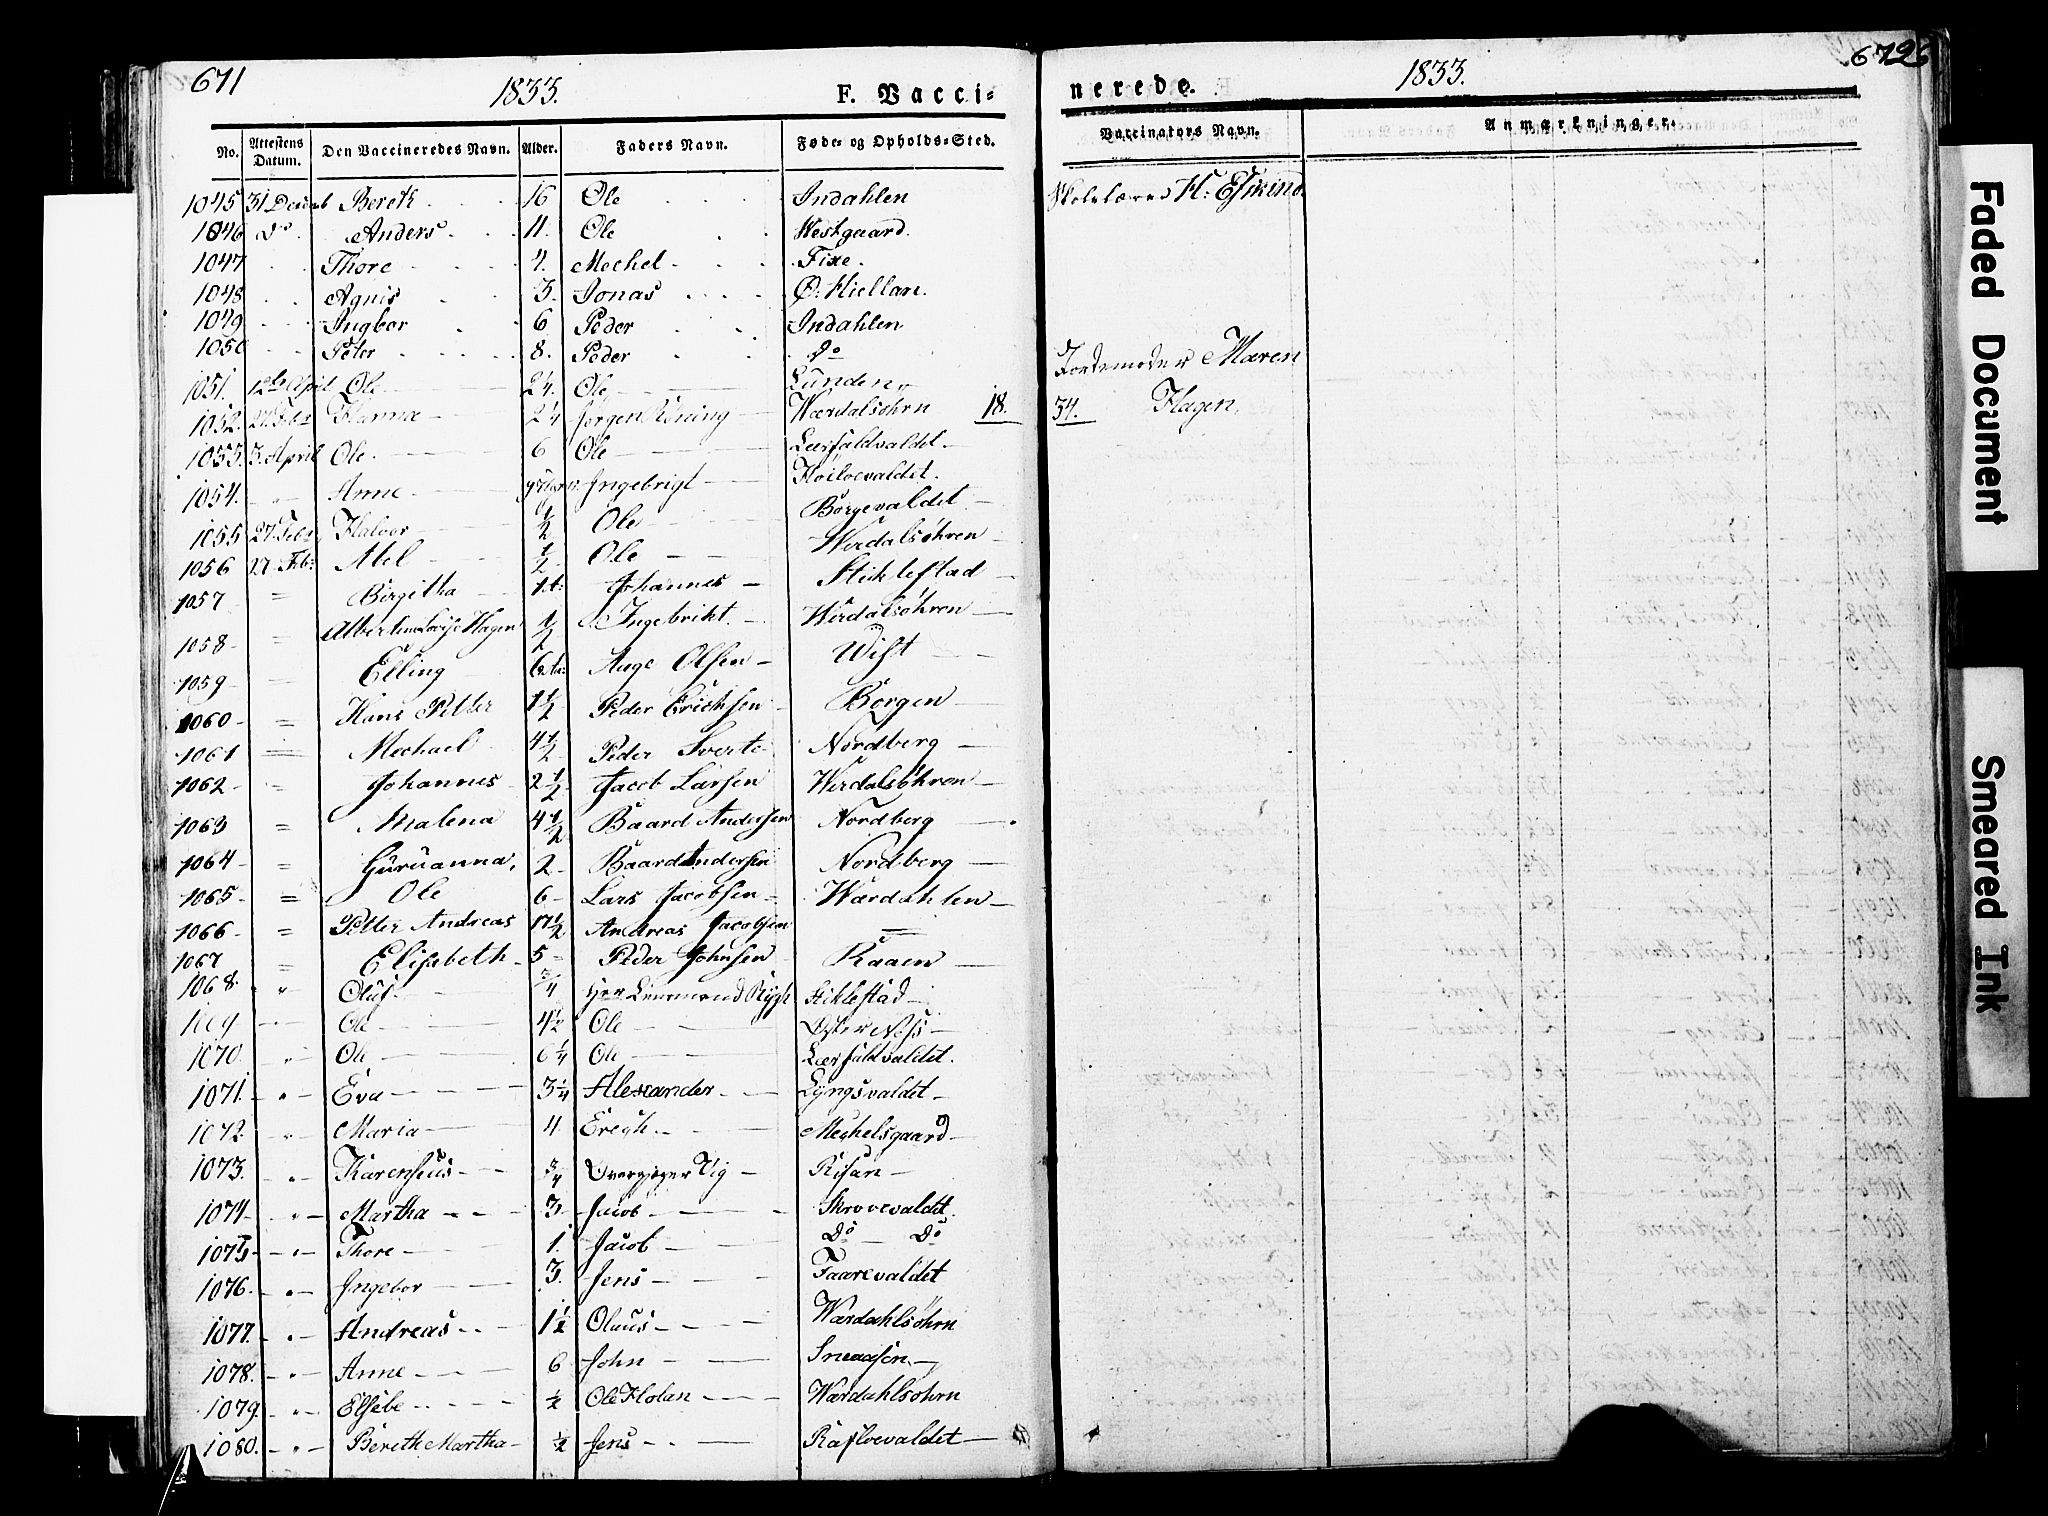 671 1833. F. Vacci-
nerede. 1833. 672
No. Attestens Datum. Den Vaccineredes Navn. Alder. Faders Navn. Føde- og Opholds-Sted. Vaccinators Navn. Anmærkninger.
1045 31 Decemb Bereth 16 Ole Indahlen Skolelærer H:
1046 Do Anders 11. Ole Westgaard.
1047 Thore 4. Mechel Fixe.
1048 Agnis 3. Jonas Ø: Hiellan.
1049 Ingbor 6 Peder Indahlen
1050 Peter 8. Peder Do
1051. 12te April Ole 2¼. Ole Lunden Jordemoder Maren
1052. 27. Febr Hanna 2¼ Jørgen Wærdalsøhrn 18. 34. Hagen.
1053. 3. April Ole. 6 Ole Leerfaldvaldet.
1054. " Anne Ingebrigt
1055 27 Febr Halvor ½ Ole Borgevaldet
1056 27 Feb: Abel ½ Ole Werdalsøhren
1057 = Birgitha Johannes Stiklestad
1058 = Hagen ½ Ingebrikt Werdalsøhren
1059 Elling Aage Olsen Wist
1060 = Hans Petter 1½ Peder Erichsen Borgen
1061 = Mechael 4½ Peder Nordberg
1062 Johannes 2½ Jacob Larsen Werdalsøhren
1063 = Malena 4½ Baard Andersen Nordberg
1064 = Guruanna, 2 Baard Andersen Nordberg
1065 = Ole 6 Lars Jacobsen Wærdahlen
1066 = Petter Andreas 17½ Andreas Jacobsen =
1067 = Elisabeth 5 Peder Johnsen Raaen
1068. " Oluf ¾ Herr Rygh Stiklestad
1069 Ole 4½ Ole Øster Næss
1070. " Ole 6¼ Ole Leerfaldvaldet.
1071. " Eva 3¼ Alexander Lyngsvaldet
1072. " Maria 4 Erich Mechelsgaard
1073. " ¾ Overjæger Vig
1074 " Martha 3. Jacob Skrovevaldet
1075 " Thore 1. Jacob Do Do
1076 " Ingebor 3. Jens Faarevaldet
1077. " Andreas 1½ Olaus Wærdahlsøhrn
1078. " Anne 6 John
1079. " Elsebe ½ Ole Holan Wærdahlsøhrn
1080. " Bereth Martha ½ Jens
Faded Document
Smeared Ink